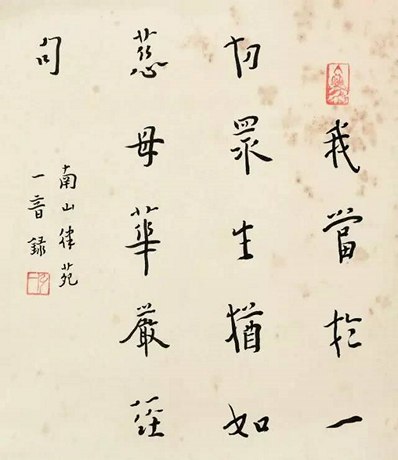 我當於一
切眾生猶如
慈母華嚴經
句
南山律苑
一音錄